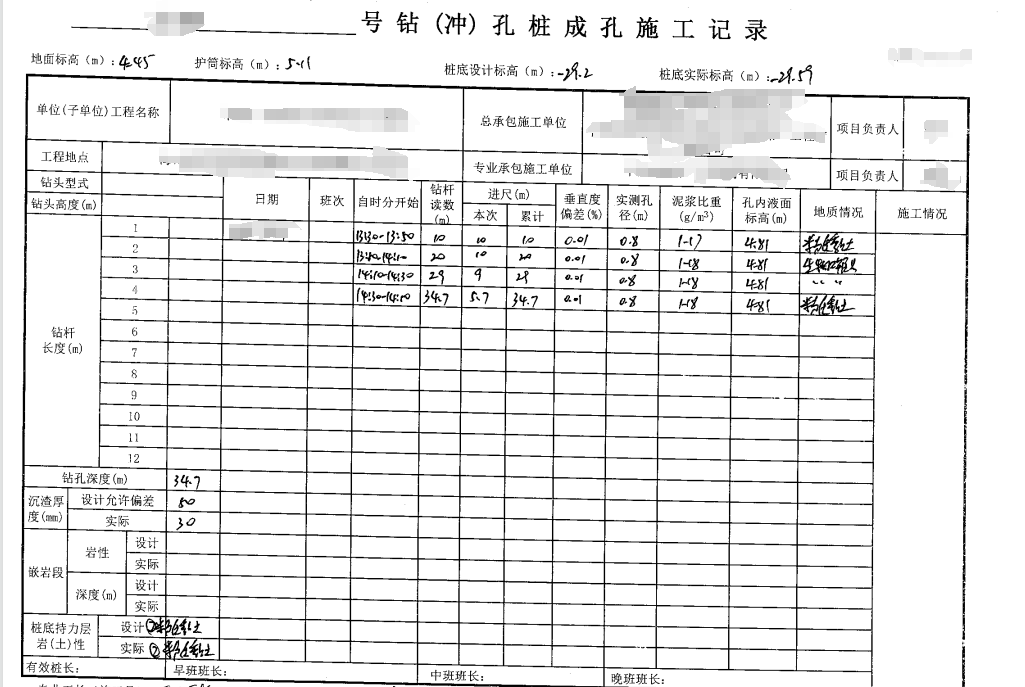 号钻(冲)孔桩成孔施工记录
地面标高(m): 4.45 护筒标高(m): 5.11 桩底设计标高(m): -29.2 桩底实际标高(m): -29.59
单位(子单位)工程名称 总承包施工单位 项目负责人
工程地点 专业承包施工单位 项目负责人
钻头型式 日期 班次 自时分开始 钻杆读数(m) 进尺(m) 垂直度偏差(%) 实测孔径(m) 泥浆比重(g/m³) 孔内液面标高(m) 地质情况 施工情况
钻头高度(m) 本次 累计
钻杆长度(m)
1 13:30-13:50 10 10 10 0.01 0.8 1.17 4.81
2 20 10 20 0.01 0.8 1.18 4.81
3 14:10-14:30 29 9 29 0.01 0.8 1.18 4.81 〃 〃
4 34.7 5.7 34.7 0.01 0.8 1.18 4.81
5
6
7
8
9
10
11
12
钻孔深度(m) 34.7
沉渣厚度(mm) 设计允许偏差 50
实际 30
嵌岩段 岩性 设计
实际
深度(m) 设计
实际
桩底持力层岩(土)性 设计
实际
有效桩长: 早班班长: 中班班长: 晚班班长: